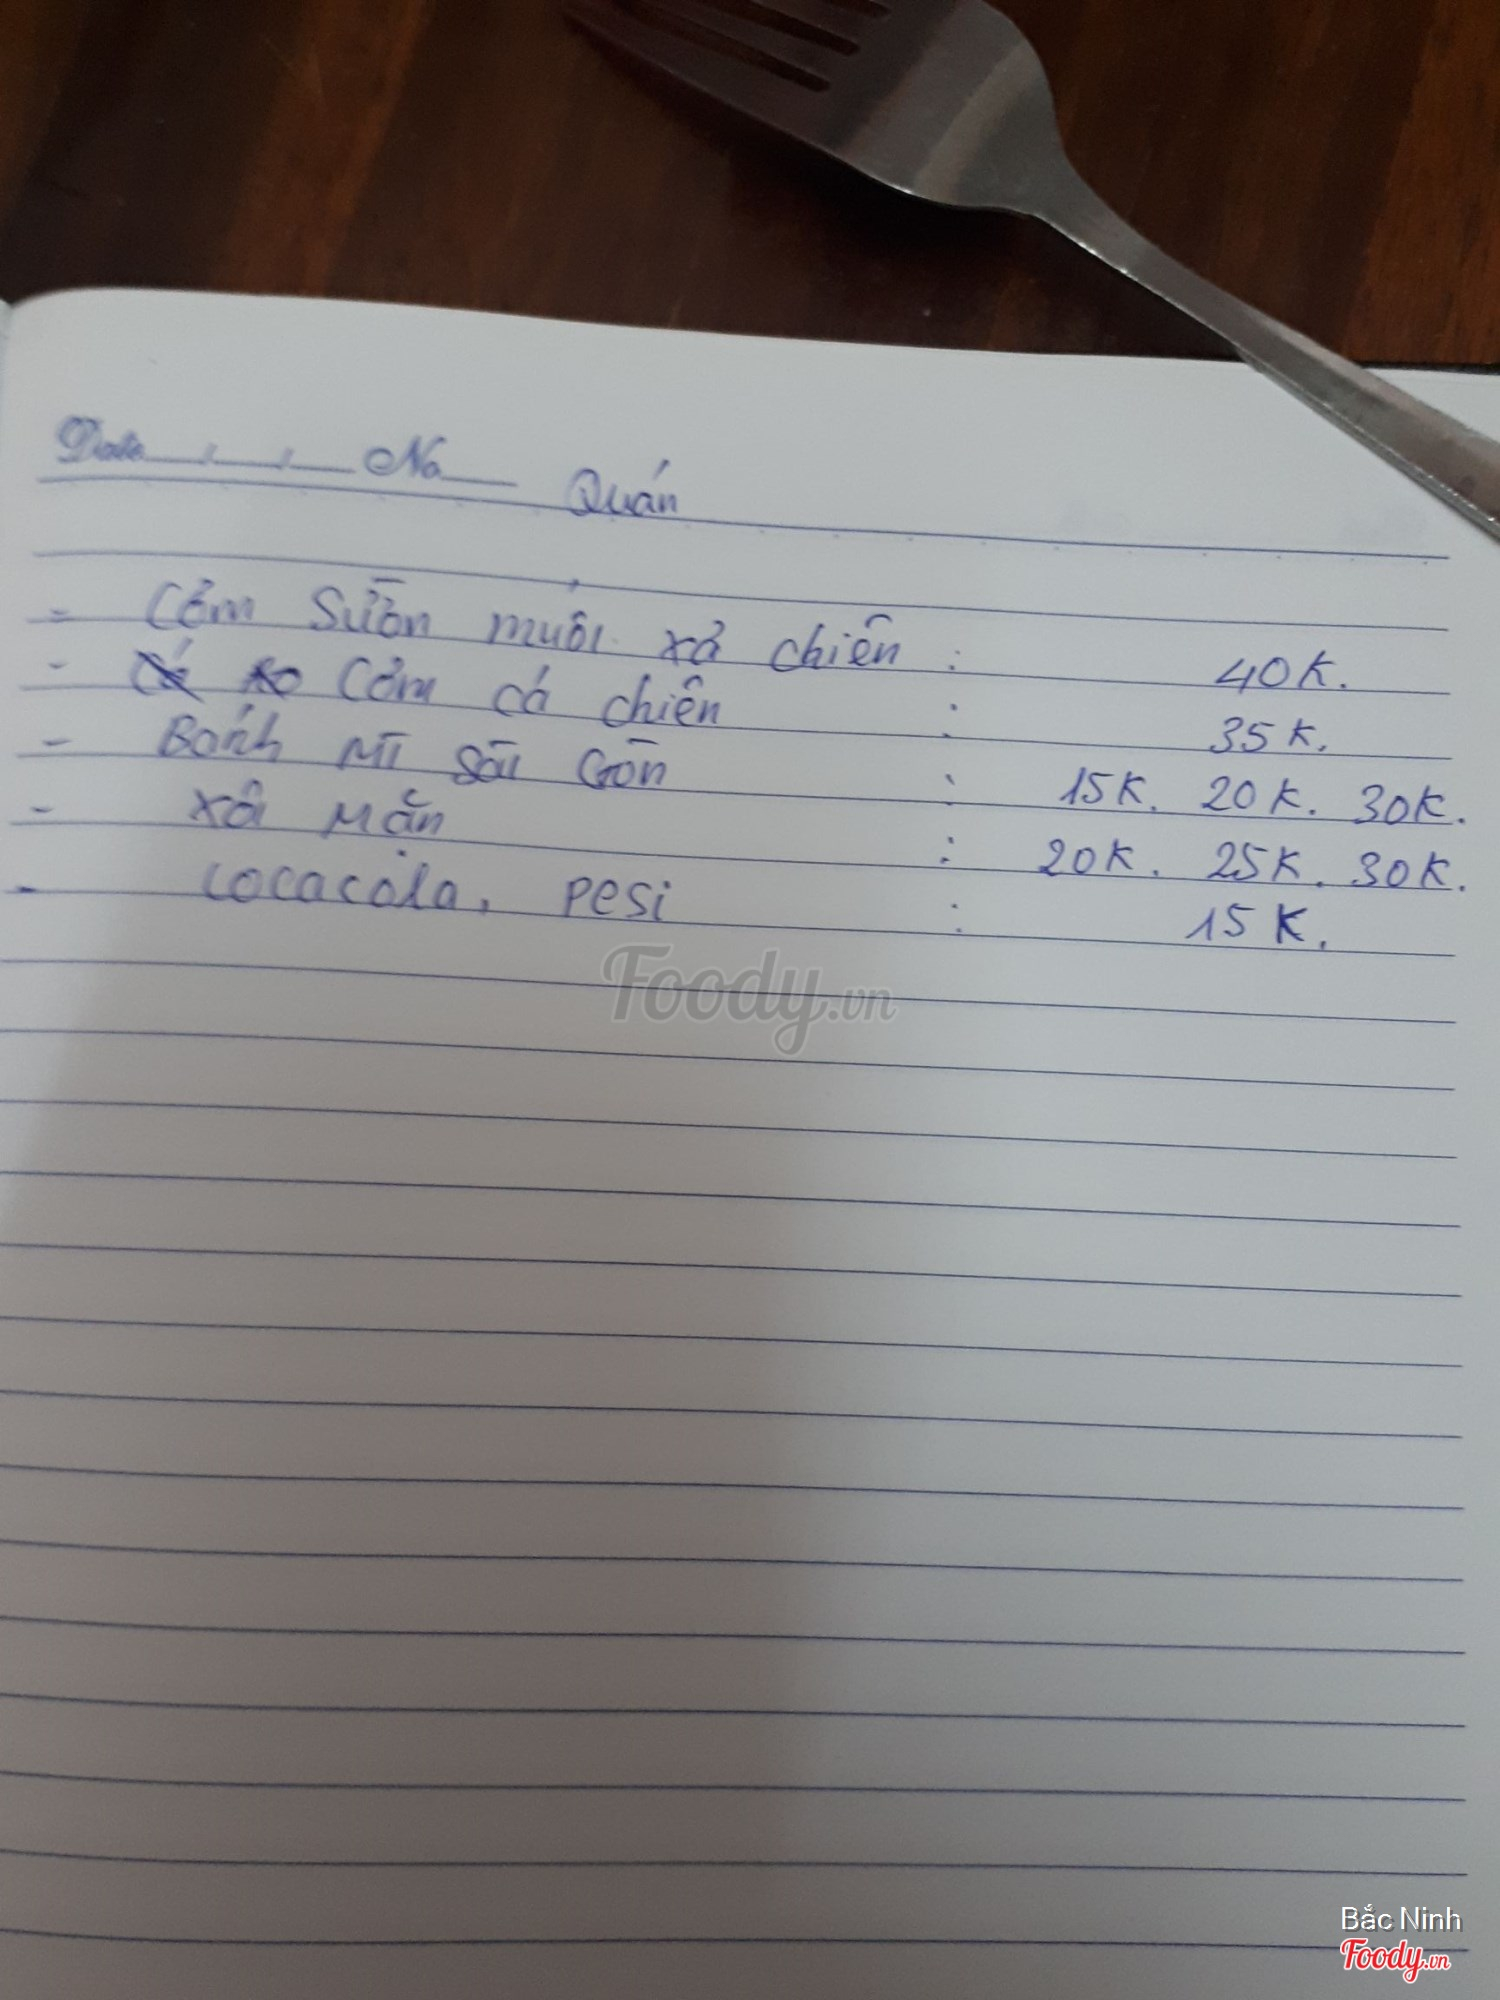 Date No
Quán
- Cơm Sườn muối xả chiên : 40K.
- Cơm cá chiên : 35K.
- Bánh Mì Sài Gòn : 15K. 20K. 30K.
- xôi Mặn : 20K. 25K. 30K.
- cocacola, pesi : 15K.
Foody.vn
Bắc Ninh
Foody.vn